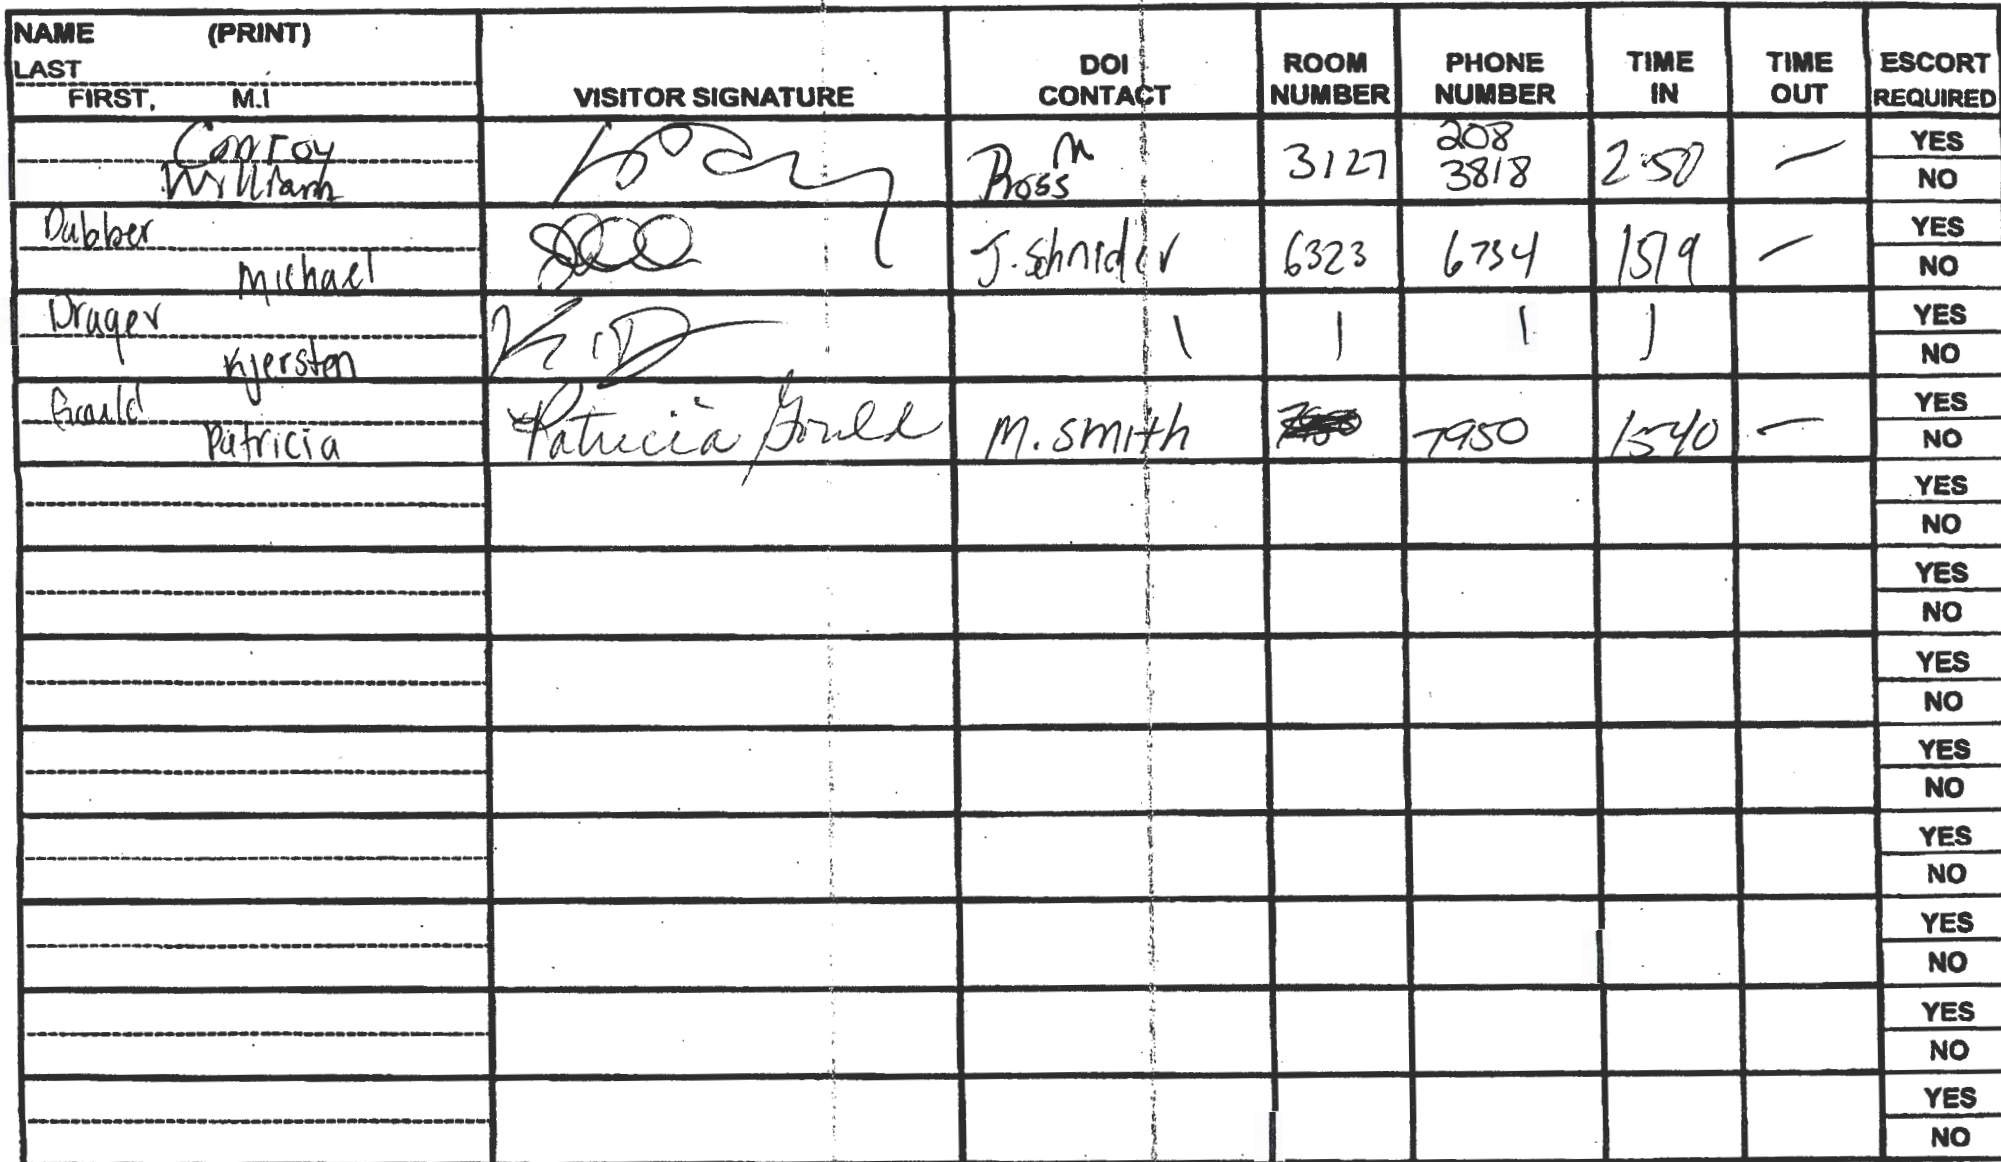 NAME (PRINT)
LAST
FIRST, M.I
VISITOR SIGNATURE
DOI CONTACT
ROOM NUMBER
PHONE NUMBER
TIME IN
TIME OUT
ESCORT REQUIRED
Conroy
William
Ross M
3127
208
3818
2:50
—
YES
NO
Dubber
Michael
J. Schnider
6323
6734
1519
—
YES
NO
Drager
Kjersten
K D
\ | | |
YES
NO
Gould
Patricia
Patricia Gould
M. Smith
7950
1540
—
YES
NO
YES
NO
YES
NO
YES
NO
YES
NO
YES
NO
YES
NO
YES
NO
YES
NO